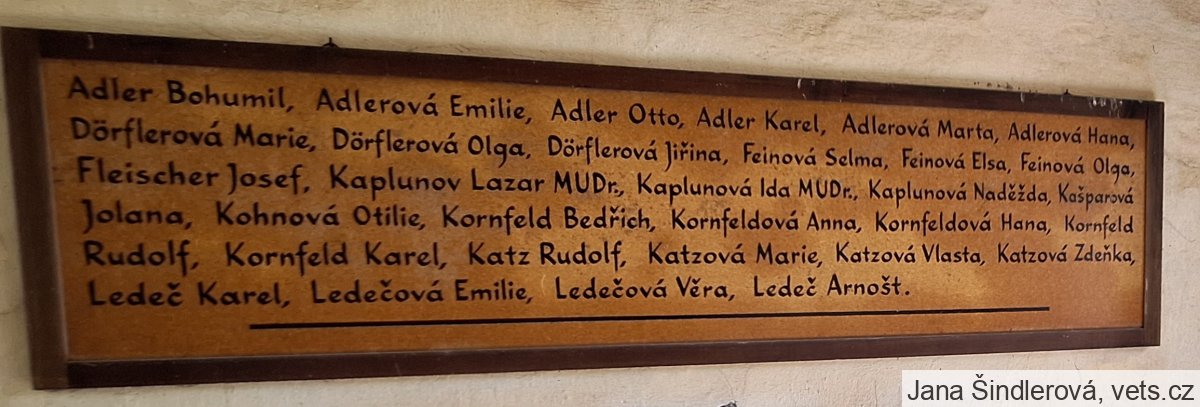 Adler Bohumil, Adlerová Emilie, Adler Otto, Adler Karel, Adlerová Marta, Adlerová Hana,
Dörflerová Marie, Dörflerová Olga, Dörflerová Jiřina, Feinová Selma, Feinová Elsa, Feinová Olga,
Fleischer Josef, Kaplunov Lazar MUDr., Kaplunová Ida MUDr., Kaplunová Naděžda, Kašparová
Jolana, Kohnová Otilie, Kornfeld Bedřich, Kornfeldová Anna, Kornfeldová Hana, Kornfeld
Rudolf, Kornfeld Karel, Katz Rudolf, Katzová Marie, Katzová Vlasta, Katzová Zdeňka,
Ledeč Karel, Ledečová Emilie, Ledečová Věra, Ledeč Arnošt.
Jana Šindlerová, vets.cz